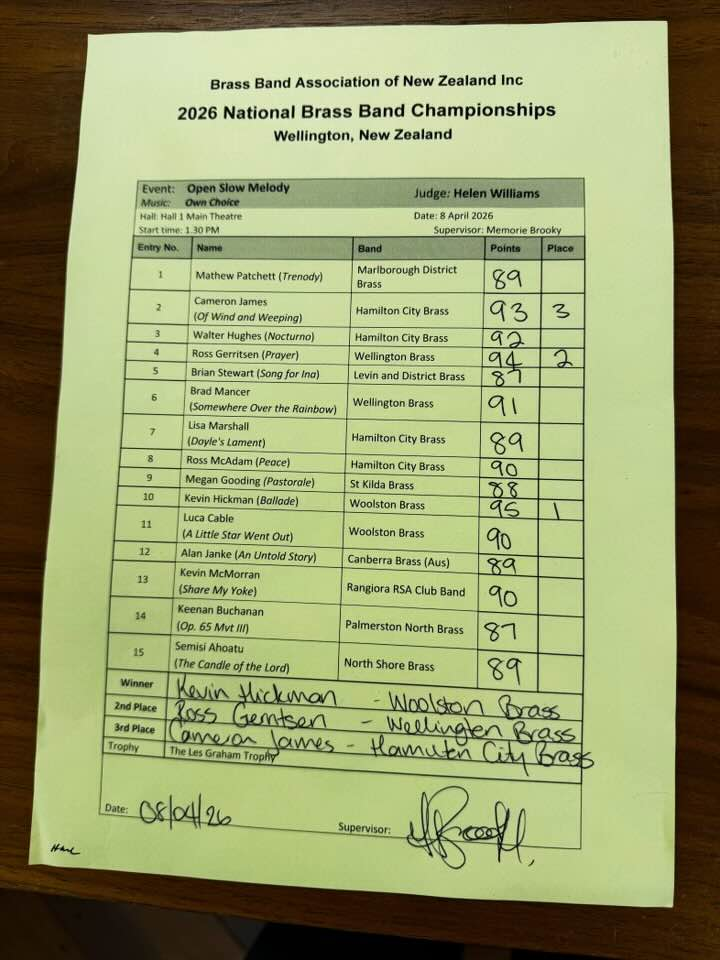 Brass Band Association of New Zealand Inc
2026 National Brass Band Championships
Wellington, New Zealand
Event: Open Slow Melody Judge: Helen Williams
Music: Own Choice
Hall: Hall 1 Main Theatre Date: 8 April 2026
Start time: 1.30 PM Supervisor: Memorie Brooky
Entry No. Name Band Points Place
1 Mathew Patchett (Trenody) Marlborough District Brass 89
2 Cameron James (Of Wind and Weeping) Hamilton City Brass 93 3
3 Walter Hughes (Nocturno) Hamilton City Brass 92
4 Ross Gerritsen (Prayer) Wellington Brass 94 2
5 Brian Stewart (Song for Ina) Levin and District Brass 87
6 Brad Mancer (Somewhere Over the Rainbow) Wellington Brass 91
7 Lisa Marshall (Doyle's Lament) Hamilton City Brass 89
8 Ross McAdam (Peace) Hamilton City Brass 90
9 Megan Gooding (Pastorale) St Kilda Brass 88
10 Kevin Hickman (Ballade) Woolston Brass 95 1
11 Luca Cable (A Little Star Went Out) Woolston Brass 90
12 Alan Janke (An Untold Story) Canberra Brass (Aus) 89
13 Kevin McMorran (Share My Yoke) Rangiora RSA Club Band 90
14 Keenan Buchanan (Op. 65 Mvt III) Palmerston North Brass 87
15 Semisi Ahoatu (The Candle of the Lord) North Shore Brass 89
Winner Kevin Hickman - Woolston Brass
2nd Place Ross Gerritsen - Wellington Brass
3rd Place Cameron James - Hamilton City Brass
Trophy The Les Graham Trophy
Date: 08/04/26
Supervisor: